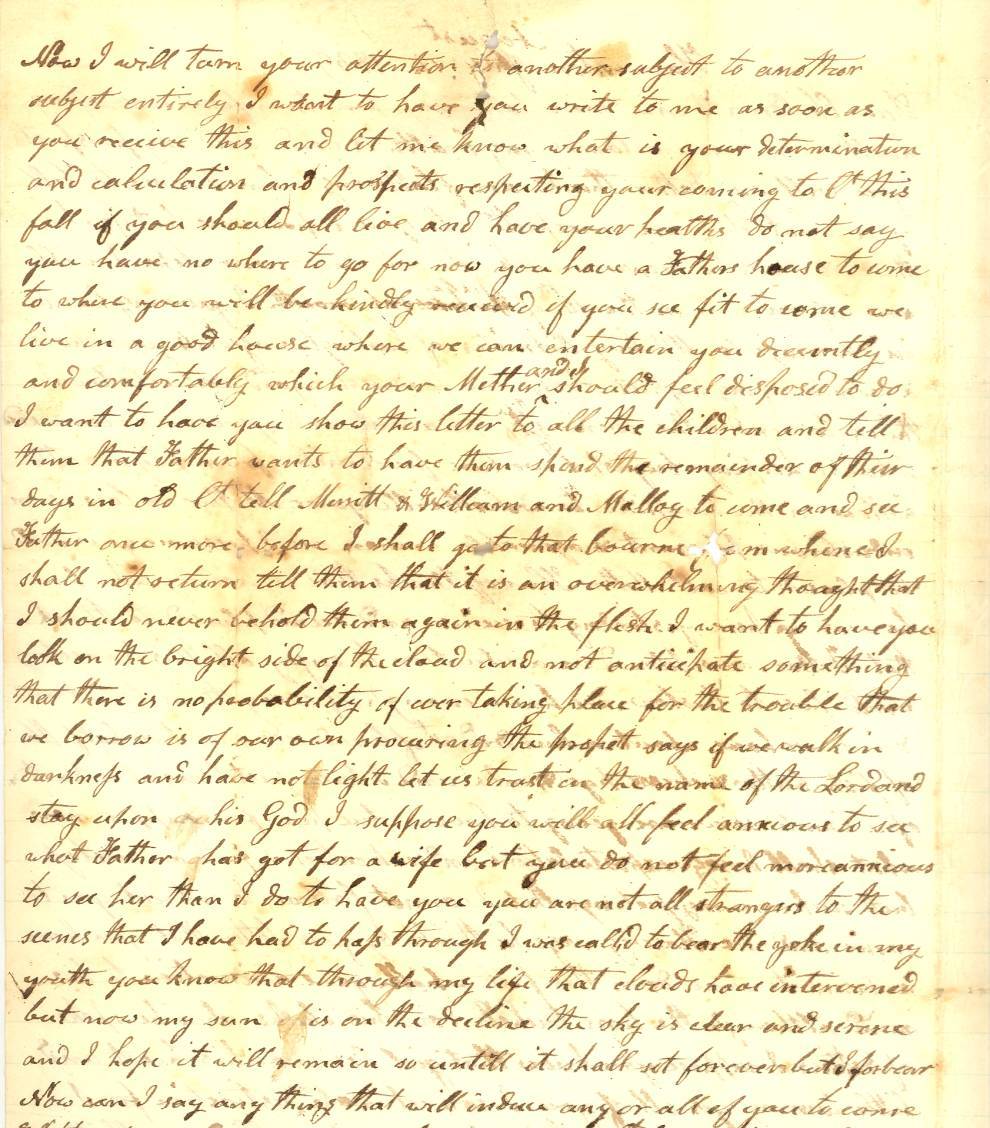 Now I will turn your attention to another subject to another
subject entirely I want to have you write to me as soon as
you receive this and let me know what is your determination
and calculation and prospects respecting your coming to Ct this
fall if you should all live and have your healths do not say
you have no where to go for now you have a Fathers house to come
to where you will be kindly received if you see fit to come we
live in a good house where we can entertain you decently
and comfortably which your Mother and I should feel disposed to do
I want to have you show this letter to all the children and tell
them that Father wants to have them spend the remainder of their
days in old Ct tell Merritt & William and Mallog to come and see
Father once more before I shall go to that bourne whence I
shall not return tell them that it is an overwhelming thought that
I should never behold them again in the flesh I want to have you
look on the bright side of the cloud and not anticipate something
that there is no probability of ever taking place for the trouble that
we borrow is of our own procuring the prophet says if we walk in
darkness and have not light let us trust in the name of the Lord and
stay upon his God I suppose you will all feel anxious to see
what Father has got for a wife but you do not feel more anxious
to see her than I do to have you you are not all strangers to the
scenes that I have had to pass through I was called to bear the yoke in my
youth you know that through my life that clouds have intervened
but now my sun is on the decline the sky is clear and serene
and I hope it will remain so untill it shall set forever but I forbear
Now can I say any thing that will induce any or all of you to come